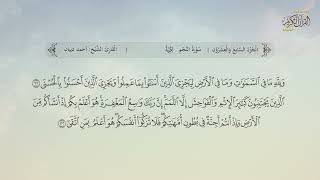 القرآن الكريم
الجزء السابع والعشرون | سورة النجم مكية | القارئ الشيخ: أحمد ديبان
وَلِلَّهِ مَا فِي السَّمَٰوَٰتِ وَمَا فِي الْأَرْضِ لِيَجْزِيَ الَّذِينَ أَسَٰٓـُٔوا بِمَا عَمِلُوا وَيَجْزِيَ الَّذِينَ أَحْسَنُوا بِالْحُسْنَى ٣١
الَّذِينَ يَجْتَنِبُونَ كَبَٰٓئِرَ الْإِثْمِ وَالْفَوَٰحِشَ إِلَّا اللَّمَمَ إِنَّ رَبَّكَ وَٰسِعُ الْمَغْفِرَةِ هُوَ أَعْلَمُ بِكُمْ إِذْ أَنشَأَكُم مِّنَ
الْأَرْضِ وَإِذْ أَنتُمْ أَجِنَّةٌ فِي بُطُونِ أُمَّهَٰتِكُمْ فَلَا تُزَكُّوا أَنفُسَكُمْ هُوَ أَعْلَمُ بِمَنِ اتَّقَىٰ ٣٢